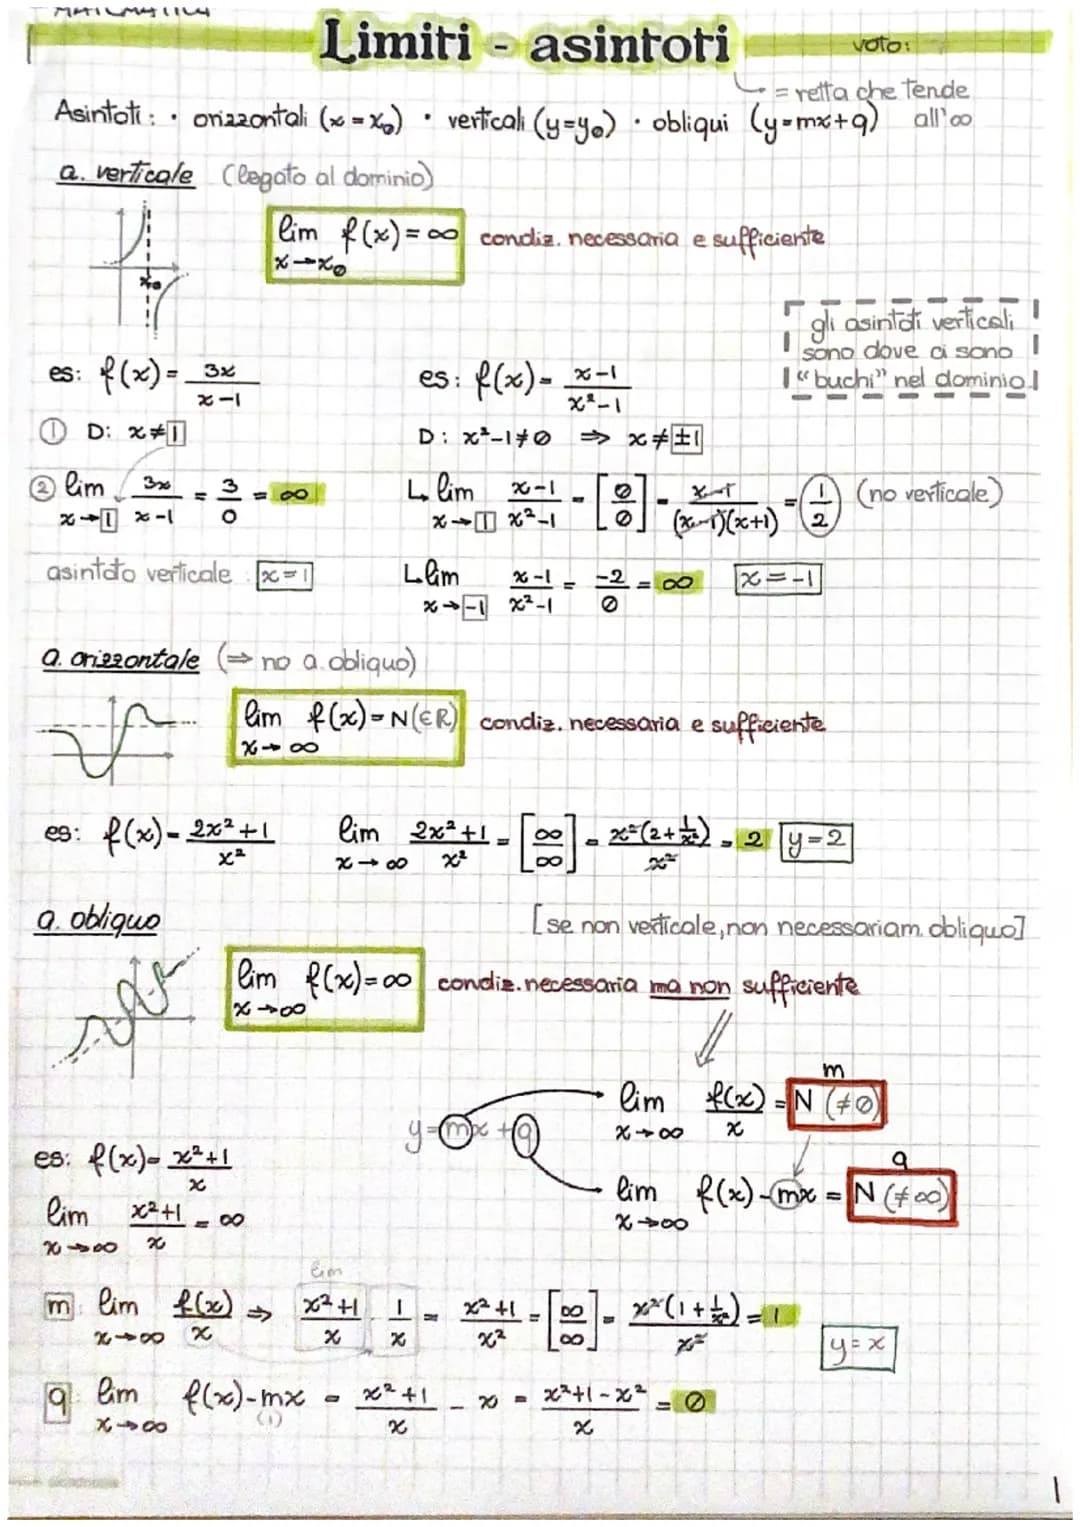 MATEMATICA
Limiti - asintoti
voto:
= retta che tende all'∞
Asintoti: · orizzontali (x = x₀) · verticali (y=y₀) · obliqui (y=mx+q)
a. verticale (legato al dominio)
lim f(x) = ∞ condiz. necessaria e sufficiente
x→x₀
x₀
gli asintoti verticali
sono dove ci sono
"buchi" nel dominio
es: f(x) = 3x / x-1
es: f(x) = x-1 / x²-1
① D: x≠1
D: x²-1≠0 ⇒ x≠±1
② lim 3x / x-1 = 3 / 0 = ∞
x→1
↳ lim x-1 / x²-1 = [0/0] = x-1 / (x-1)(x+1) = 1/2 (no verticale)
x→1
asintoto verticale: x=1
↳ lim x-1 / x²-1 = -2 / 0 = ∞ x=-1
x→-1
a. orizzontale (⇒ no a. obliquo)
lim f(x) = N (∈R) condiz. necessaria e sufficiente
x→∞
es: f(x) = 2x²+1 / x²
lim 2x²+1 / x² = [∞/∞] = x²(2+1/x²) / x² = 2 y=2
x→∞
a. obliquo
[se non verticale, non necessariam. obliquo]
lim f(x) = ∞ condiz. necessaria ma non sufficiente
x→∞
y=mx+q
m
lim f(x) / x = N (≠0)
x→∞
q
lim f(x)-mx = N (≠∞)
x→∞
es: f(x) = x²+1 / x
lim x²+1 / x = ∞
x→∞
lim
m: lim f(x) / x ⇒ x²+1 / x · 1 / x = x²+1 / x² = [∞/∞] = x²(1+1/x²) / x² = 1
x→∞
y=x
q: lim f(x)-mx = x²+1 / x - x = x²+1-x² / x = 0
x→∞ (1)
1